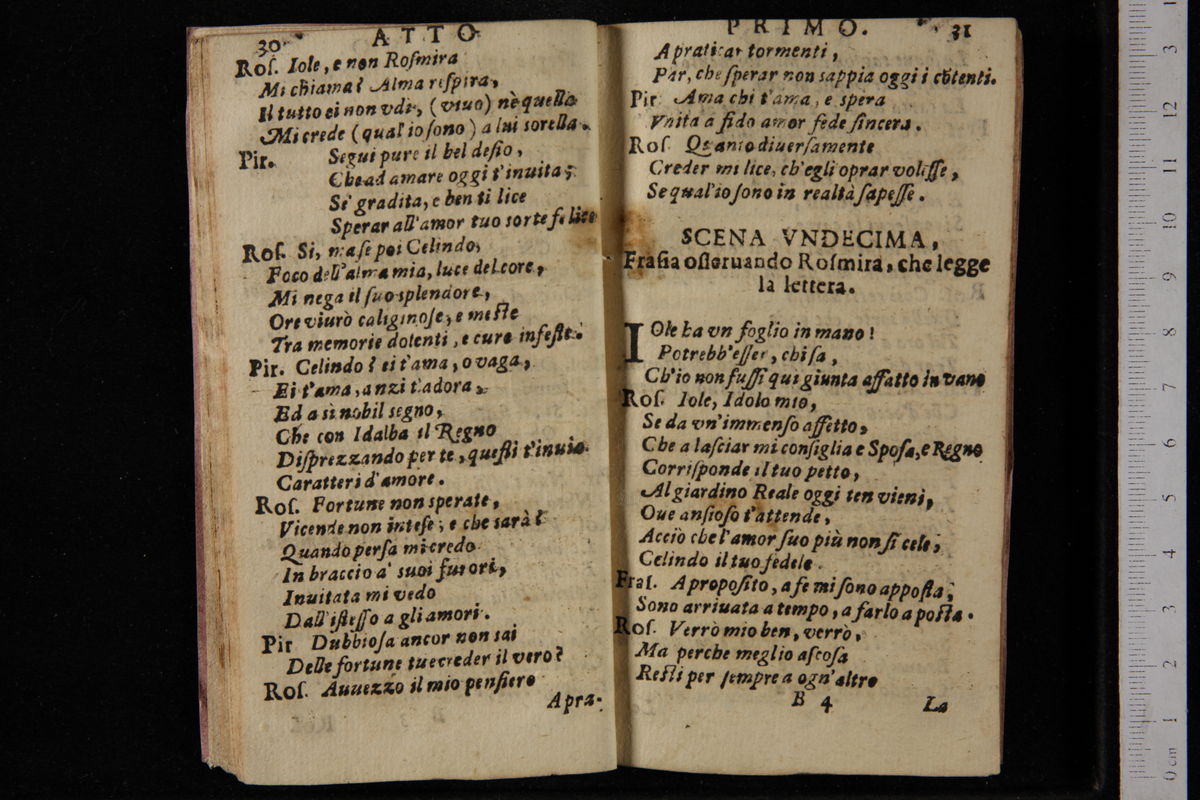 30 ATTO
Roſ. Iole, e non Roſmira
Mi chiama? Alma reſpira,
Il tutto ei non vdì, (viuo) nè quella
Mi crede (qual'io ſono) a lui sorella.
Pir. Segui pure il bel deſio,
Che ad amare oggi t'inuita;
Se' gradita, e ben ti lice
Sperar all'amor tuo sorte felice
Roſ. Si, ma ſe poi Celindo,
Foco dell'alma mia, luce del core,
Mi nega il ſuo splendore,
Ore viurò caliginoſe, e meſte
Tra memorie dolenti, e cure infeſte.
Pir. Celindo? ei t'ama, o vaga,
Ei t'ama, anzi t'adora,
Ed a sì nobil segno,
Che con Idalba il Regno
Diſprezzando per te, queſti t'inuia
Caratteri d'amore.
Roſ. Fortune non sperate,
Vicende non inteſe; e che sarà?
Quando perſa mi credo
In braccio a' suoi furori,
Inuitata mi vedo
Dall'iſteſſo a gli amori.
Pir Dubbioſa ancor non sai
Delle fortune tue creder il vero?
Roſ. Auuezzo il mio penſiero
Apra-
PRIMO. 31
A praticar tormenti,
Par, che ſperar non sappia oggi i cõtenti.
Pir Ama chi t'ama, e spera
Vnita a fido amor fede ſincera.
Roſ. Quanto diuerſamente
Creder mi lice, ch'egli oprar voleſſe,
Se qual'io ſono in realtà ſapeſſe.
SCENA VNDECIMA,
Fraſia oſſeruando Roſmira, che legge
la lettera.
IOle ha vn foglio in mano!
Potrebb'eſſer, chi ſa,
Ch'io non fuſſi qui giunta affatto in vano
Roſ. Iole, Idolo mio,
Se da vn'immenſo affetto,
Che a laſciar mi conſiglia e Spoſa, e Regno
Corriſponde il tuo petto,
Al giardino Reale oggi ten vieni,
Oue anſioſo t'attende,
Acciò che l'amor ſuo più non ſi cele,
Celindo il tuo fedele.
Fraſ. A propoſito, a fe mi ſono appoſta;
Sono arriuata a tempo, a farlo a poſta.
Roſ. Verrò mio ben, verrò,
Ma perche meglio aſcoſa
Reſti per ſempre a ogn'altro
B 4 La